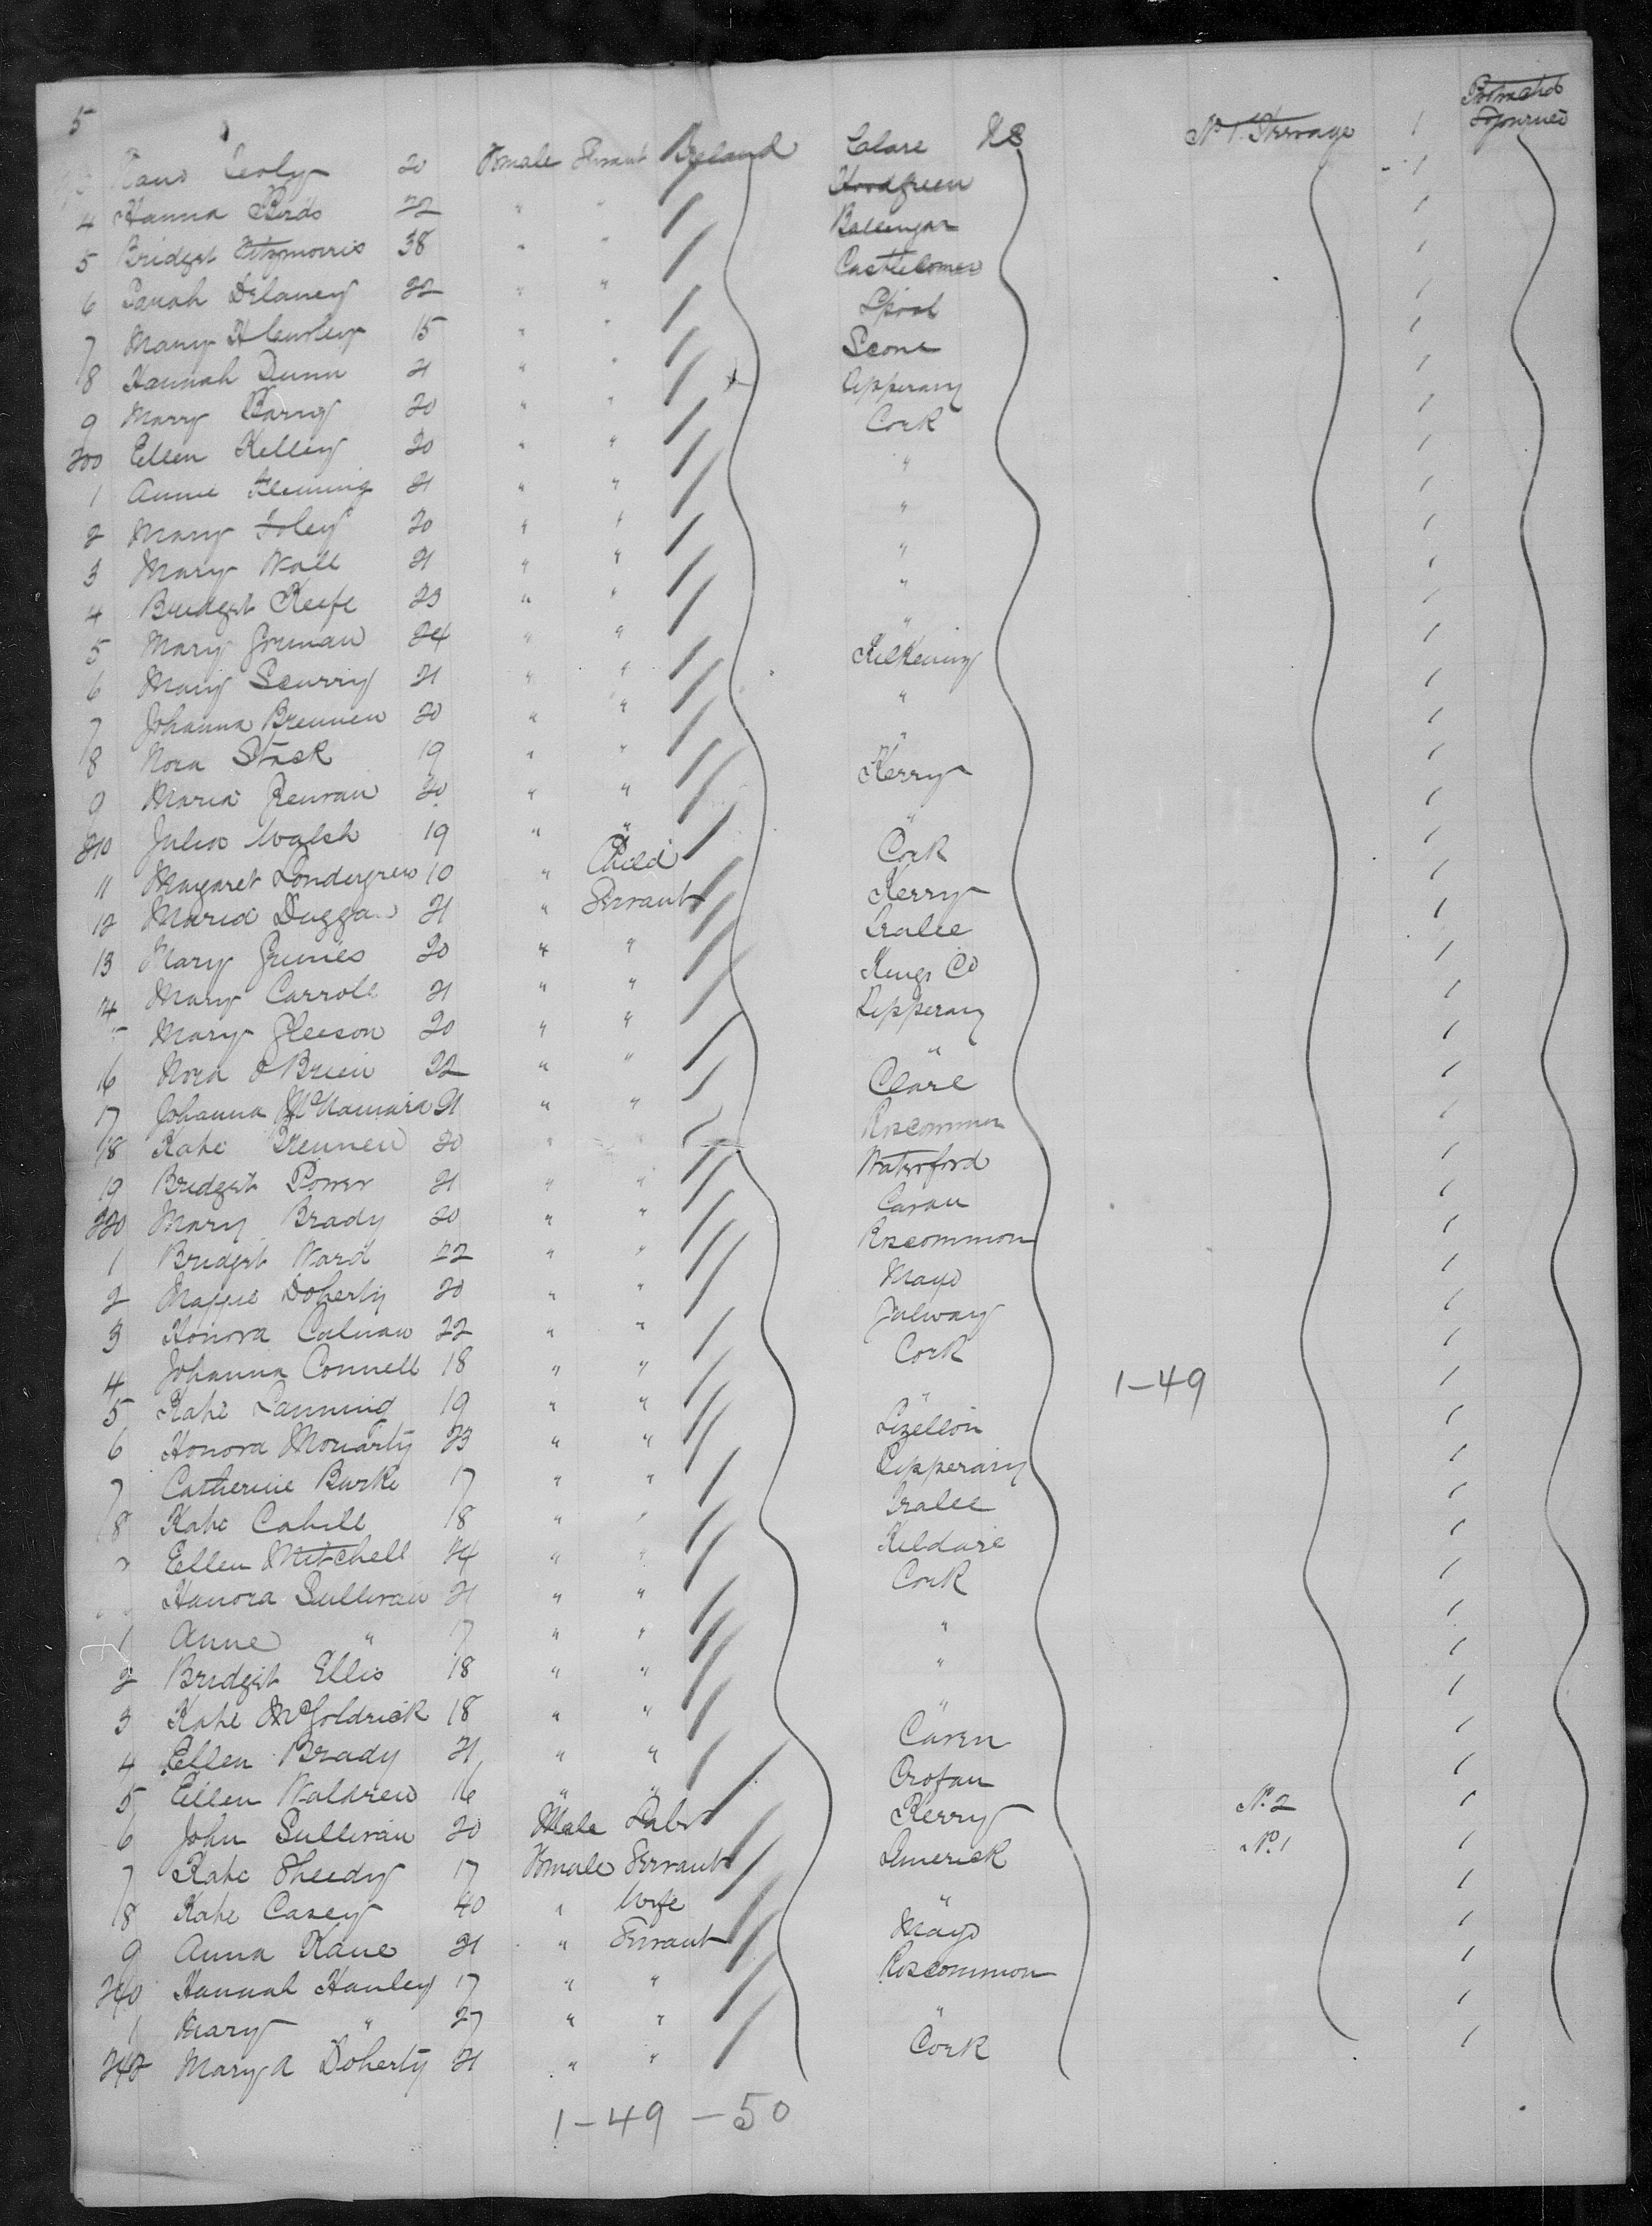 5
Protracted
Sojourned
20 Female Servant Ireland Clare U S No 1 Steerage 1
4 Hanna 22 " " Woodgreen 1
5 Bridget Fitzmorris 38 " " Ballingar 1
6 Sarah Delaney 22 " " Castlecomer 1
7 Mary 15 " " 1
8 Hannah Dunn 21 " " 1
9 Marry 20 " " Tipperary 1
200 Ellen Kelley 20 " " Cork 1
1 Annie Fleming 21 " " " 1
2 Mary Foley 20 " " " 1
3 Mary Wall 21 " " " 1
4 Bridget Keefe 23 " " " 1
5 Mary 24 " " " 1
6 Mary Scurry 21 " " Kilkenny 1
7 Johanna Brennen 20 " " " 1
8 Nora Stack 19 " " " 1
9 Maria 20 " " Kerry 1
210 Julia Walsh 19 " " " 1
11 Margaret Londergrew 10 " Child Cork 1
12 Maria Duggan 21 " Servant Kerry 1
13 Mary Grimes 20 " " Tralee 1
14 Mary Carroll 21 " " Kings Co 1
Mary Gleeson 20 " " Tipperary 1
16 Nora O'Brien 22 " " " 1
17 Johanna McNamara 21 " " Clare 1
18 Kate 20 " " Roscommon 1
19 Bridget Power 21 " " Waterford 1
220 Mary Brady 20 " " Cavan 1
1 Bridget Ward 22 " " Roscommon 1
2 Maggie Doherty 20 " " Mayo 1
3 Honora 22 " " Galway 1
4 Johanna Connell 18 " " Cork 1
1-49
5 Kate 19 " " " 1
6 Honora Moriarty 23 " " 1
7 Catherine Burke 17 " " Tipperary 1
8 Kate Cahill 18 " " Tralee 1
Ellen Mitchell 24 " " Kildare 1
Hanora Sullivan 21 " " Cork 1
1 Anne " 17 " " " 1
2 Bridget Ellis 18 " " " 1
3 Kate McGoldrick 18 " " " 1
4 Ellen Brady 21 " " Caven 1
5 Ellen Waldren 16 " " 1
6 John Sullivan 20 Male Labr Kerry No 2 1
7 Kate Sheedy 17 Female Servant Limerick No 1 1
8 Kate Casey 40 " Wife " 1
9 Anna Kane 21 " Servant Mayo 1
240 Hannah Hanley 17 " " Roscommon 1
1 Mary " 27 " " " 1
242 Mary A Doherty 21 " " Cork 1
1-49-50